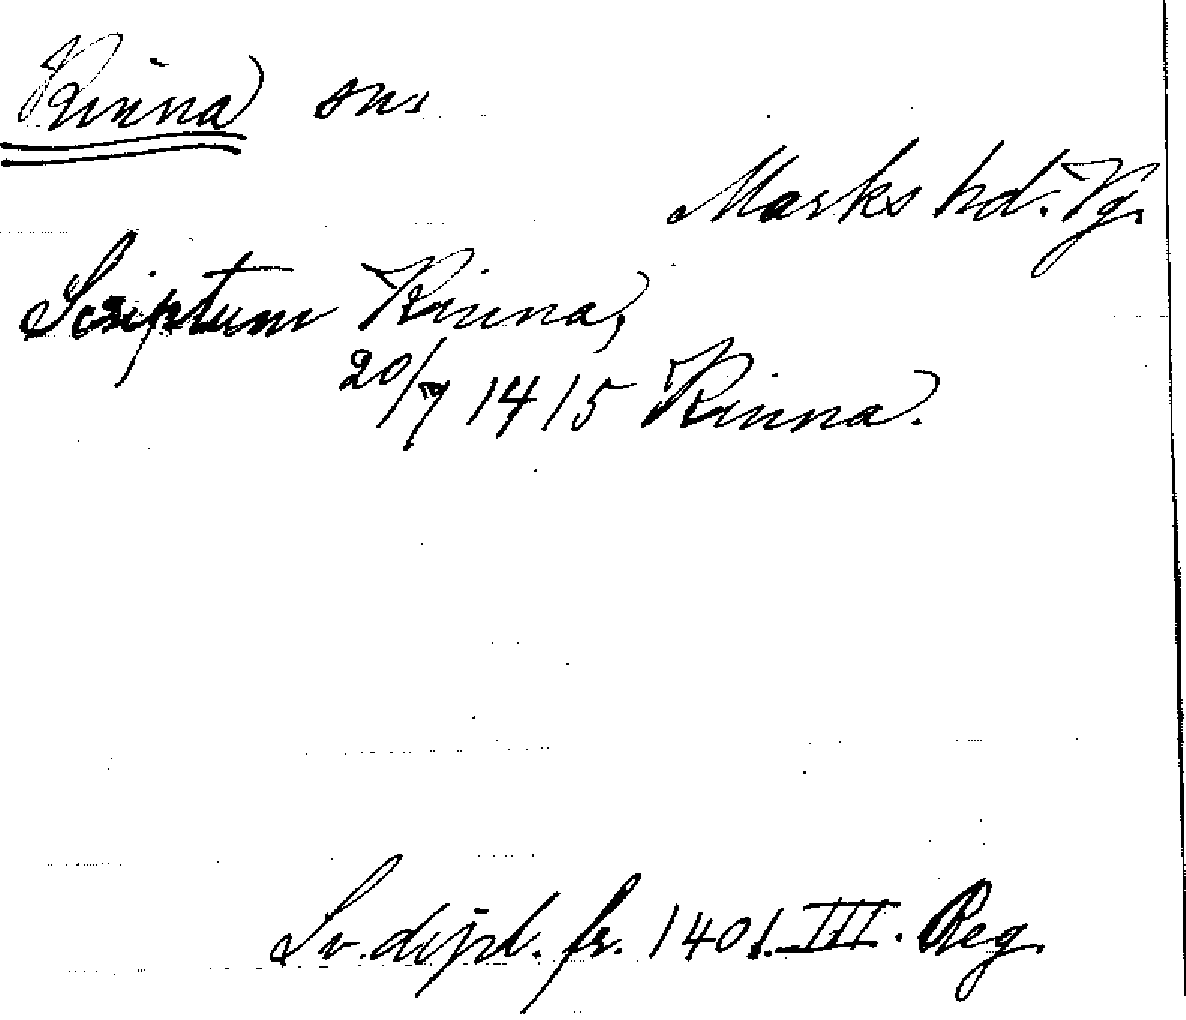 Kinna sns
Marks hd. Vg.
Scriptum Kinna,
20/7 1415 Kinna.
Sv. dipl. fr. 1401. III. Reg.